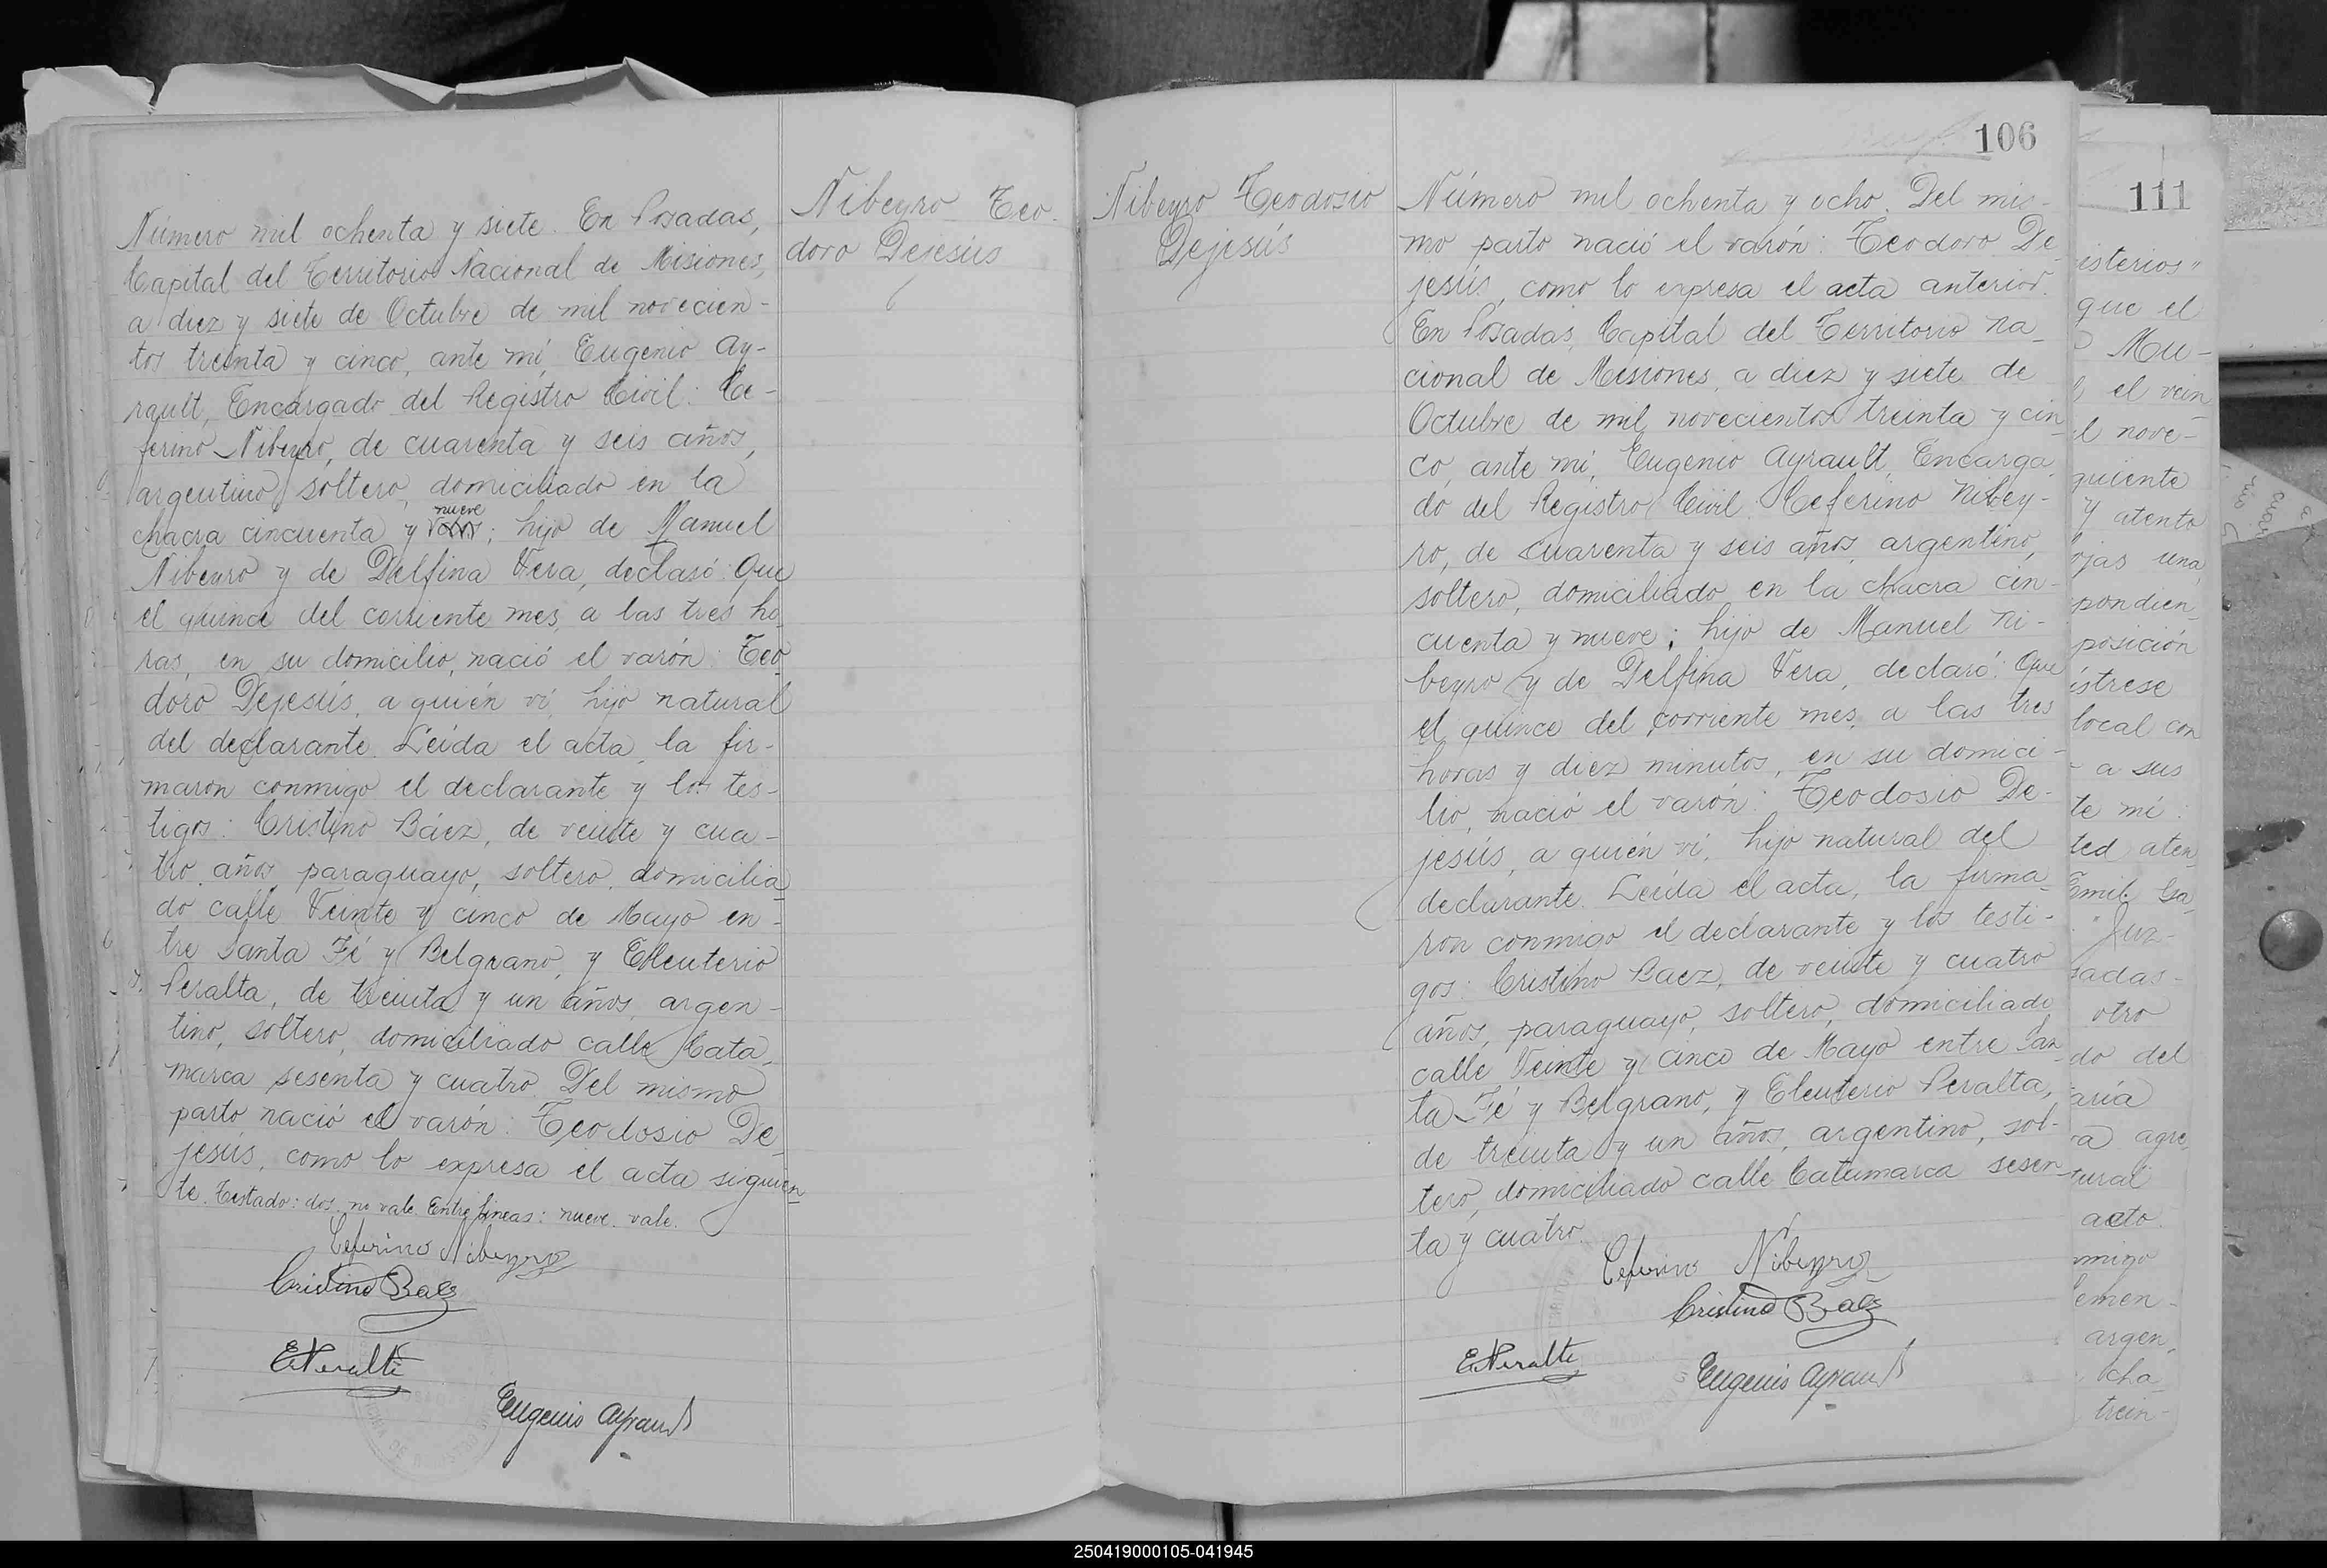 Nibeyro Teo-
doro Dejesús
Número mil ochenta y siete. En Posadas,
Capital del Territorio Nacional de Misiones,
a diez y siete de Octubre de mil novecien-
tos treinta y cinco, ante mí, Eugenio Ay-
rault, Encargado del Registro Civil: Ce-
ferino Nibeyro, de cuarenta y seis años,
argentino, soltero, domiciliado en la
nueve
chacra cincuenta y dos; hijo de Manuel
Nibeyro y de Delfina Vera, declaró: Que
el quince del corriente mes, a las tres ho-
ras, en su domicilio, nació el varón: Teo-
doro Dejesús, a quién ví, hijo natural
del declarante. Leída el acta, la fir-
maron conmigo el declarante y los tes-
tigos: Cristino Báez, de veinte y cua-
tro años, paraguayo, soltero, domicilia-
do calle Veinte y cinco de Mayo en-
tre Santa Fé y Belgrano, y Eleuterio
Peralta, de treinta y un años, argen-
tino, soltero, domiciliado calle Cata-
marca sesenta y cuatro. Del mismo
parto nació el varón: Teodosio De-
jesús, como lo expresa el acta siguien-
te. Testado: dos. no vale. Entre lineas: nueve. vale.
Ceferino Nibeyro
Cristino Baez
E. Peralta
Eugenio Ayrault
106
Nibeyro Teodosio
Dejesús
Número mil ochenta y ocho. Del mis-
mo parto nació el varón: Teodoro De-
jesús, como lo expresa el acta anterior.
En Posadas, Capital del Territorio Na-
cional de Misiones, a diez y siete de
Octubre de mil novecientos treinta y cin-
co, ante mí, Eugenio Ayrault, Encarga-
do del Registro Civil: Ceferino Nibey-
ro, de cuarenta y seis años, argentino,
soltero, domiciliado en la chacra cin-
cuenta y nueve; hijo de Manuel Ni-
beyro y de Delfina Vera, declaró: Que
el quince del corriente mes, a las tres
horas y diez minutos, en su domici-
lio, nació el varón: Teodosio De-
jesús, a quién ví, hijo natural del
declarante. Leída el acta, la firma-
ron conmigo el declarante y los testi-
gos: Cristino Baez, de veinte y cuatro
años, paraguayo, soltero, domiciliado
calle Veinte y cinco de Mayo entre San-
ta Fé y Belgrano, y Eleuterio Peralta,
de treinta y un años, argentino, sol-
tero, domiciliado calle Catamarca sesen-
ta y cuatro.
Ceferino Nibeyro
Cristino Baez
E. Peralta
Eugenio Ayrault
111
isterios"
que el
Mu-
el vein
l nove-
quiente
y atento
ojas una
pondien
posición
ístrese
local con
a sus
te mí:
ted aten
Emil Ga
Juz-
sadas-
otro
do del
aría
ra agre
tural
acto
migo
emen-
argen,
cha
trein-
250419000105-041945